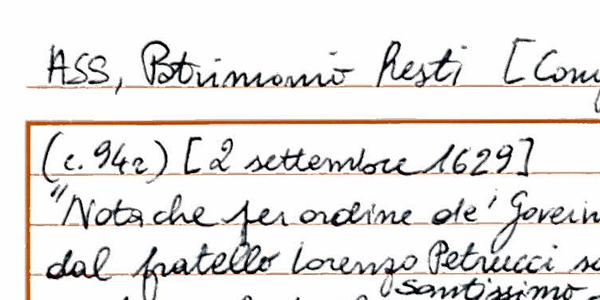 ASS, Patrimonio Resti [Com
(c. 94r) [2 settembre 1629]
"Nota che per ordine de' Govern
dal fratello Lorenzo Petrucci
santissimo